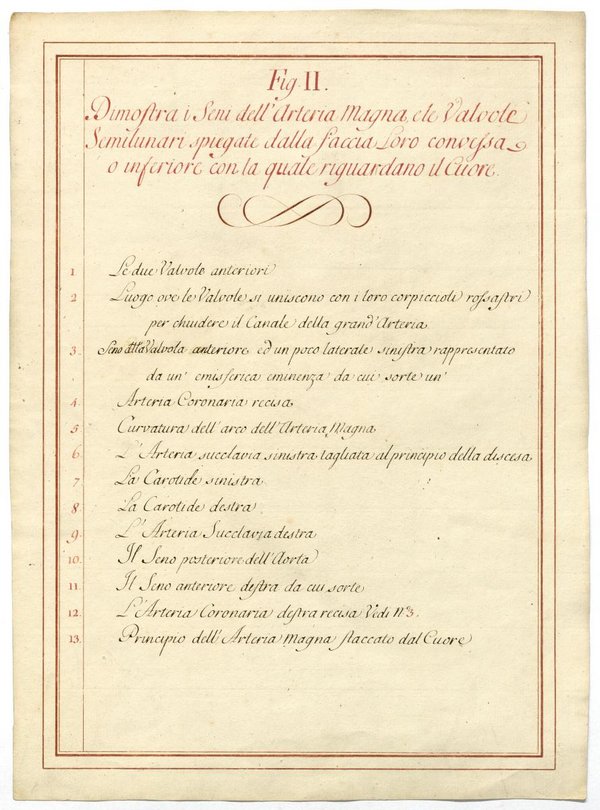 Fig. II.
Dimostra i Seni dell'Arteria Magna, e le Valvole
Semilunari spiegate dalla faccia Loro convessa
o inferiore con la quale riguardano il Cuore.
1 Le due Valvole anteriori
2 Luogo ove le Valvole si uniscono con i loro corpiccioli rossastri
per chiudere il Canale della grand'Arteria
3. Seno alla Valvola anteriore ed un poco laterale sinistra rappresentato
da un' emisferica eminenza da cui sorte un'
4 Arteria Coronaria recisa
5 Curvatura dell'arco dell'Arteria Magna
6 L'Arteria succlavia sinistra tagliata al principio della discesa
7 La Carotide sinistra
8 La Carotide destra
9. L'Arteria Succlavia destra
10. Il Seno posteriore dell'Aorta
11. Il Seno anteriore destra da cui sorte
12. L'Arteria Coronaria destra recisa Vedi N.3.
13. Principio dell'Arteria Magna staccato dal Cuore